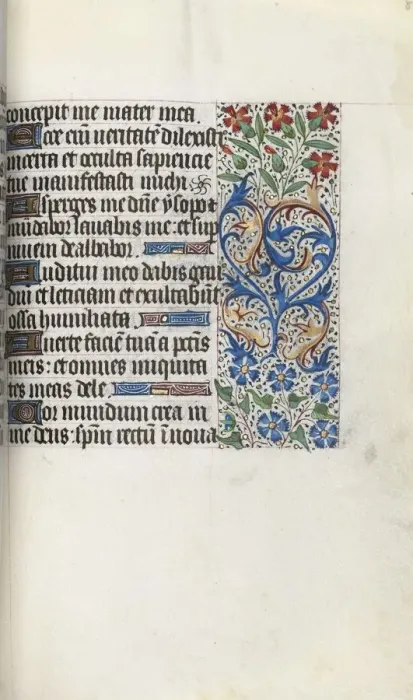 concepit me mater mea.
Ecce eni͂ ueritatē dilexisti
incerta et occulta sapiencie
tue manifestasti michi
Asperges me dn̄e ysopo ⁊
mūdabor lauabis me: et sup
niuem dealbabor.
Auditui meo dabis gau
diu et leticiam et exultabūt
ossa humiliata
Auerte faciē tuā a pctīs
meis: et omnes iniquita
tes meas dele.
Cor mundum crea in
me deus: spm̄ rectū īnoua